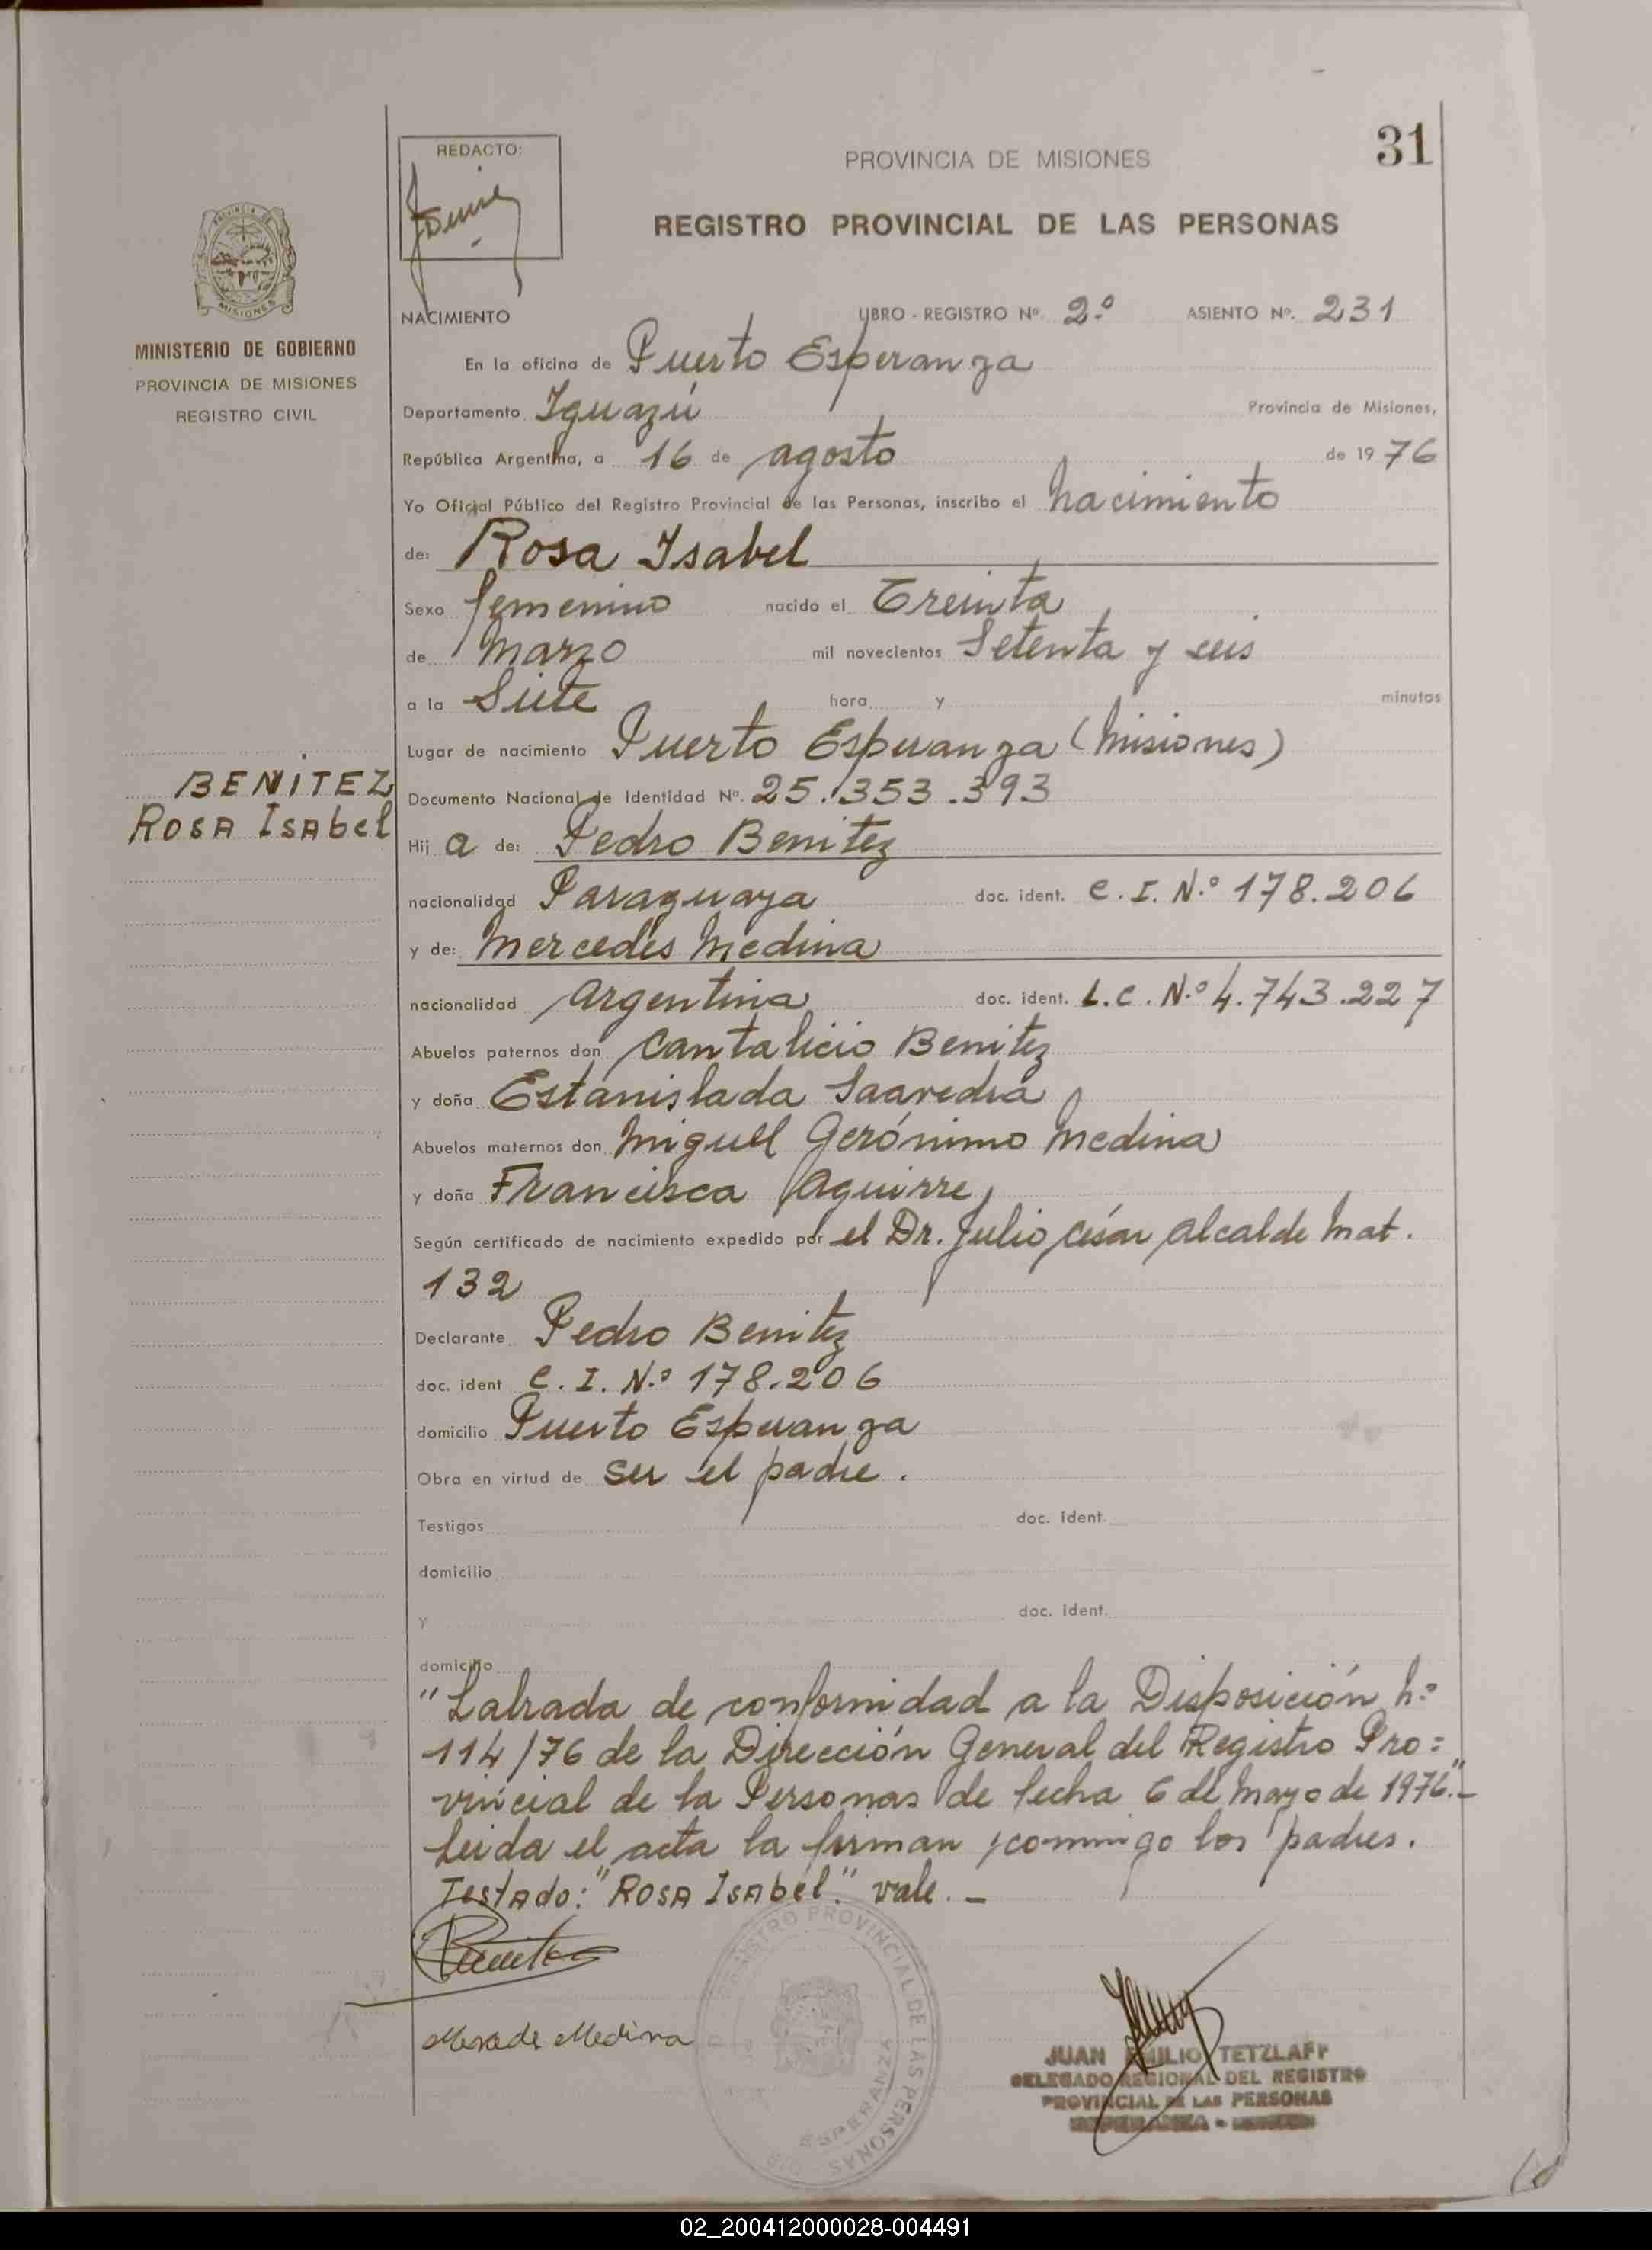 31
REDACTO:
PROVINCIA DE MISIONES
REGISTRO PROVINCIAL DE LAS PERSONAS
MISIONES
MINISTERIO DE GOBIERNO
PROVINCIA DE MISIONES
REGISTRO CIVIL
NACIMIENTO LIBRO - REGISTRO Nº. 2º ASIENTO Nº. 231
En la oficina de Puerto Esperanza
Departamento Iguazú Provincia de Misiones,
República Argentina, a 16 de agosto de 1976
Yo Oficial Público del Registro Provincial de las Personas, inscribo el nacimiento
de: Rosa Isabel
Sexo femenino nacido el Treinta
de marzo mil novecientos Setenta y seis
a la Siete hora y minutos
Lugar de nacimiento Puerto Esperanza (Misiones)
BENÍTEZ
ROSA ISAbel
Documento Nacional de Identidad Nº. 25.353.393
Hij a de: Pedro Benitez
nacionalidad Paraguaya doc. ident. C. I. N.º 178.206
y de: Mercedes Medina
nacionalidad Argentina doc. ident. L.C. N.º 4.743.227
Abuelos paternos don Cantalicio Benitez
y doña Estanislada Saavedra
Abuelos maternos don Miguel Gerónimo Medina
y doña Francisca Aguirre,
Según certificado de nacimiento expedido por el Dr. Julio César Alcalde Mat.
132
Declarante Pedro Benitez
doc. ident C. I. N.º 178.206
domicilio Puerto Esperanza
Obra en virtud de ser el padre.
Testigos doc. ident.
domicilio
y doc. ident.
domicilio
"Labrada de conformidad a la Disposición N.º
114/76 de la Dirección General del Registro Pro=
vincial de la Personas de fecha 6 de Mayo de 1976".-
Leida el acta la firman conmigo los padres.
Testado: "ROSA ISAbel" vale. -
Benitez
Mercede Medina
REGISTRO PROVINCIAL DE LAS PERSONAS
ESPERANZA
JUAN EMILIO TETZLAFF
DELEGADO REGIONAL DEL REGISTRO
PROVINCIAL DE LAS PERSONAS
02_200412000028-004491